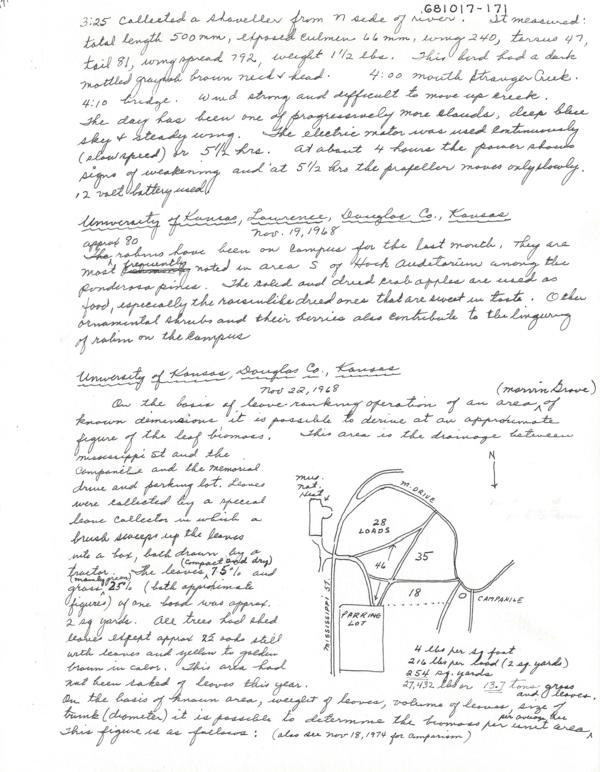 681017-171
3:25 Collected a shoveller from N side of river. It measured:
total length 500 mm, exposed culmen 66 mm, wing 240, tarsus 47,
tail 81, wing spread 792, weight 1 1/2 lbs. This bird had a dark
mottled grayish brown neck & head. 4:00 mouth Stranger Creek.
4:10 bridge. Wind strong and difficult to move up creek.
The day has been one of progressively more clouds, deep blue
sky & steady wing. The electric motor was used continuously
(slow speed) or 5 1/2 hrs. At about 4 hours the power shows
signs of weakening and at 5 1/2 hrs the propeller moves only slowly.
12 volt battery used.
University of Kansas, Lawrence, Douglas Co., Kansas
Nov. 19, 1968
approx 80
The robins have been on campus for the last month. They are
most frequently noted in area S of Hoch Auditorium among the
Ponderosa pines. The solid and dried crab apples are used as
food, especially the raisinlike dried ones that are sweet in taste. Other
ornamental shrubs and their berries also contribute to the lingering
of robin on the campus
University of Kansas, Douglas Co., Kansas
Nov 22, 1968
(Marvin Grove)
On the basis of leave ranking operation of an area of
known dimensions it is possible to derive at an approximate
figure of the leaf biomass. This area is the drainage between
Mississippi St and the
Campanile and the memorial
drive and parking lot. Leaves
were collected by a special
leave collector in which a
brush sweeps up the leaves
into a box, both drawn by a
tractor. The leaves (compact and dry) 75% and
grass (mainly green) 25% (both approximate
figures) of one load was approx.
2 sq yards. All trees had shed
leaves expept approx 25 oaks still
with leaves and yellow to golden
brown in color. This area had
not been raked of leaves this year.
On the basis of known area, weight of leaves, volume of leaves, size of
trunk (diameter) it is possible to determine the biomass per unit area
per average tree
This figure is as follows: (also see Nov 18, 1974 for comparison)
N
Mus.
Nat.
Hist
M. DRIVE
28
LOADS
46
35
18
CAMPANILE
PARKING
LOT
MISSISSIPPI ST.
4 lbs per sq foot
216 lbs per load (2 sq. yards)
254 sq. yards
27,432 lbs or 13.7 tons grass
and leaves.